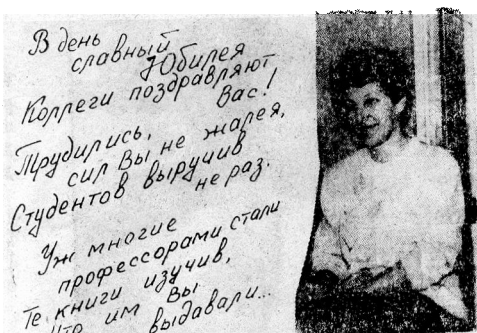 В день
славный
Юбилея
Коллеги поздравляют
Вас!
Трудились,
сил Вы не жалея,
Студентов выручив
не раз.
Уж многие
профессорами стали
Те книги изучив,
что им Вы
выдавали...